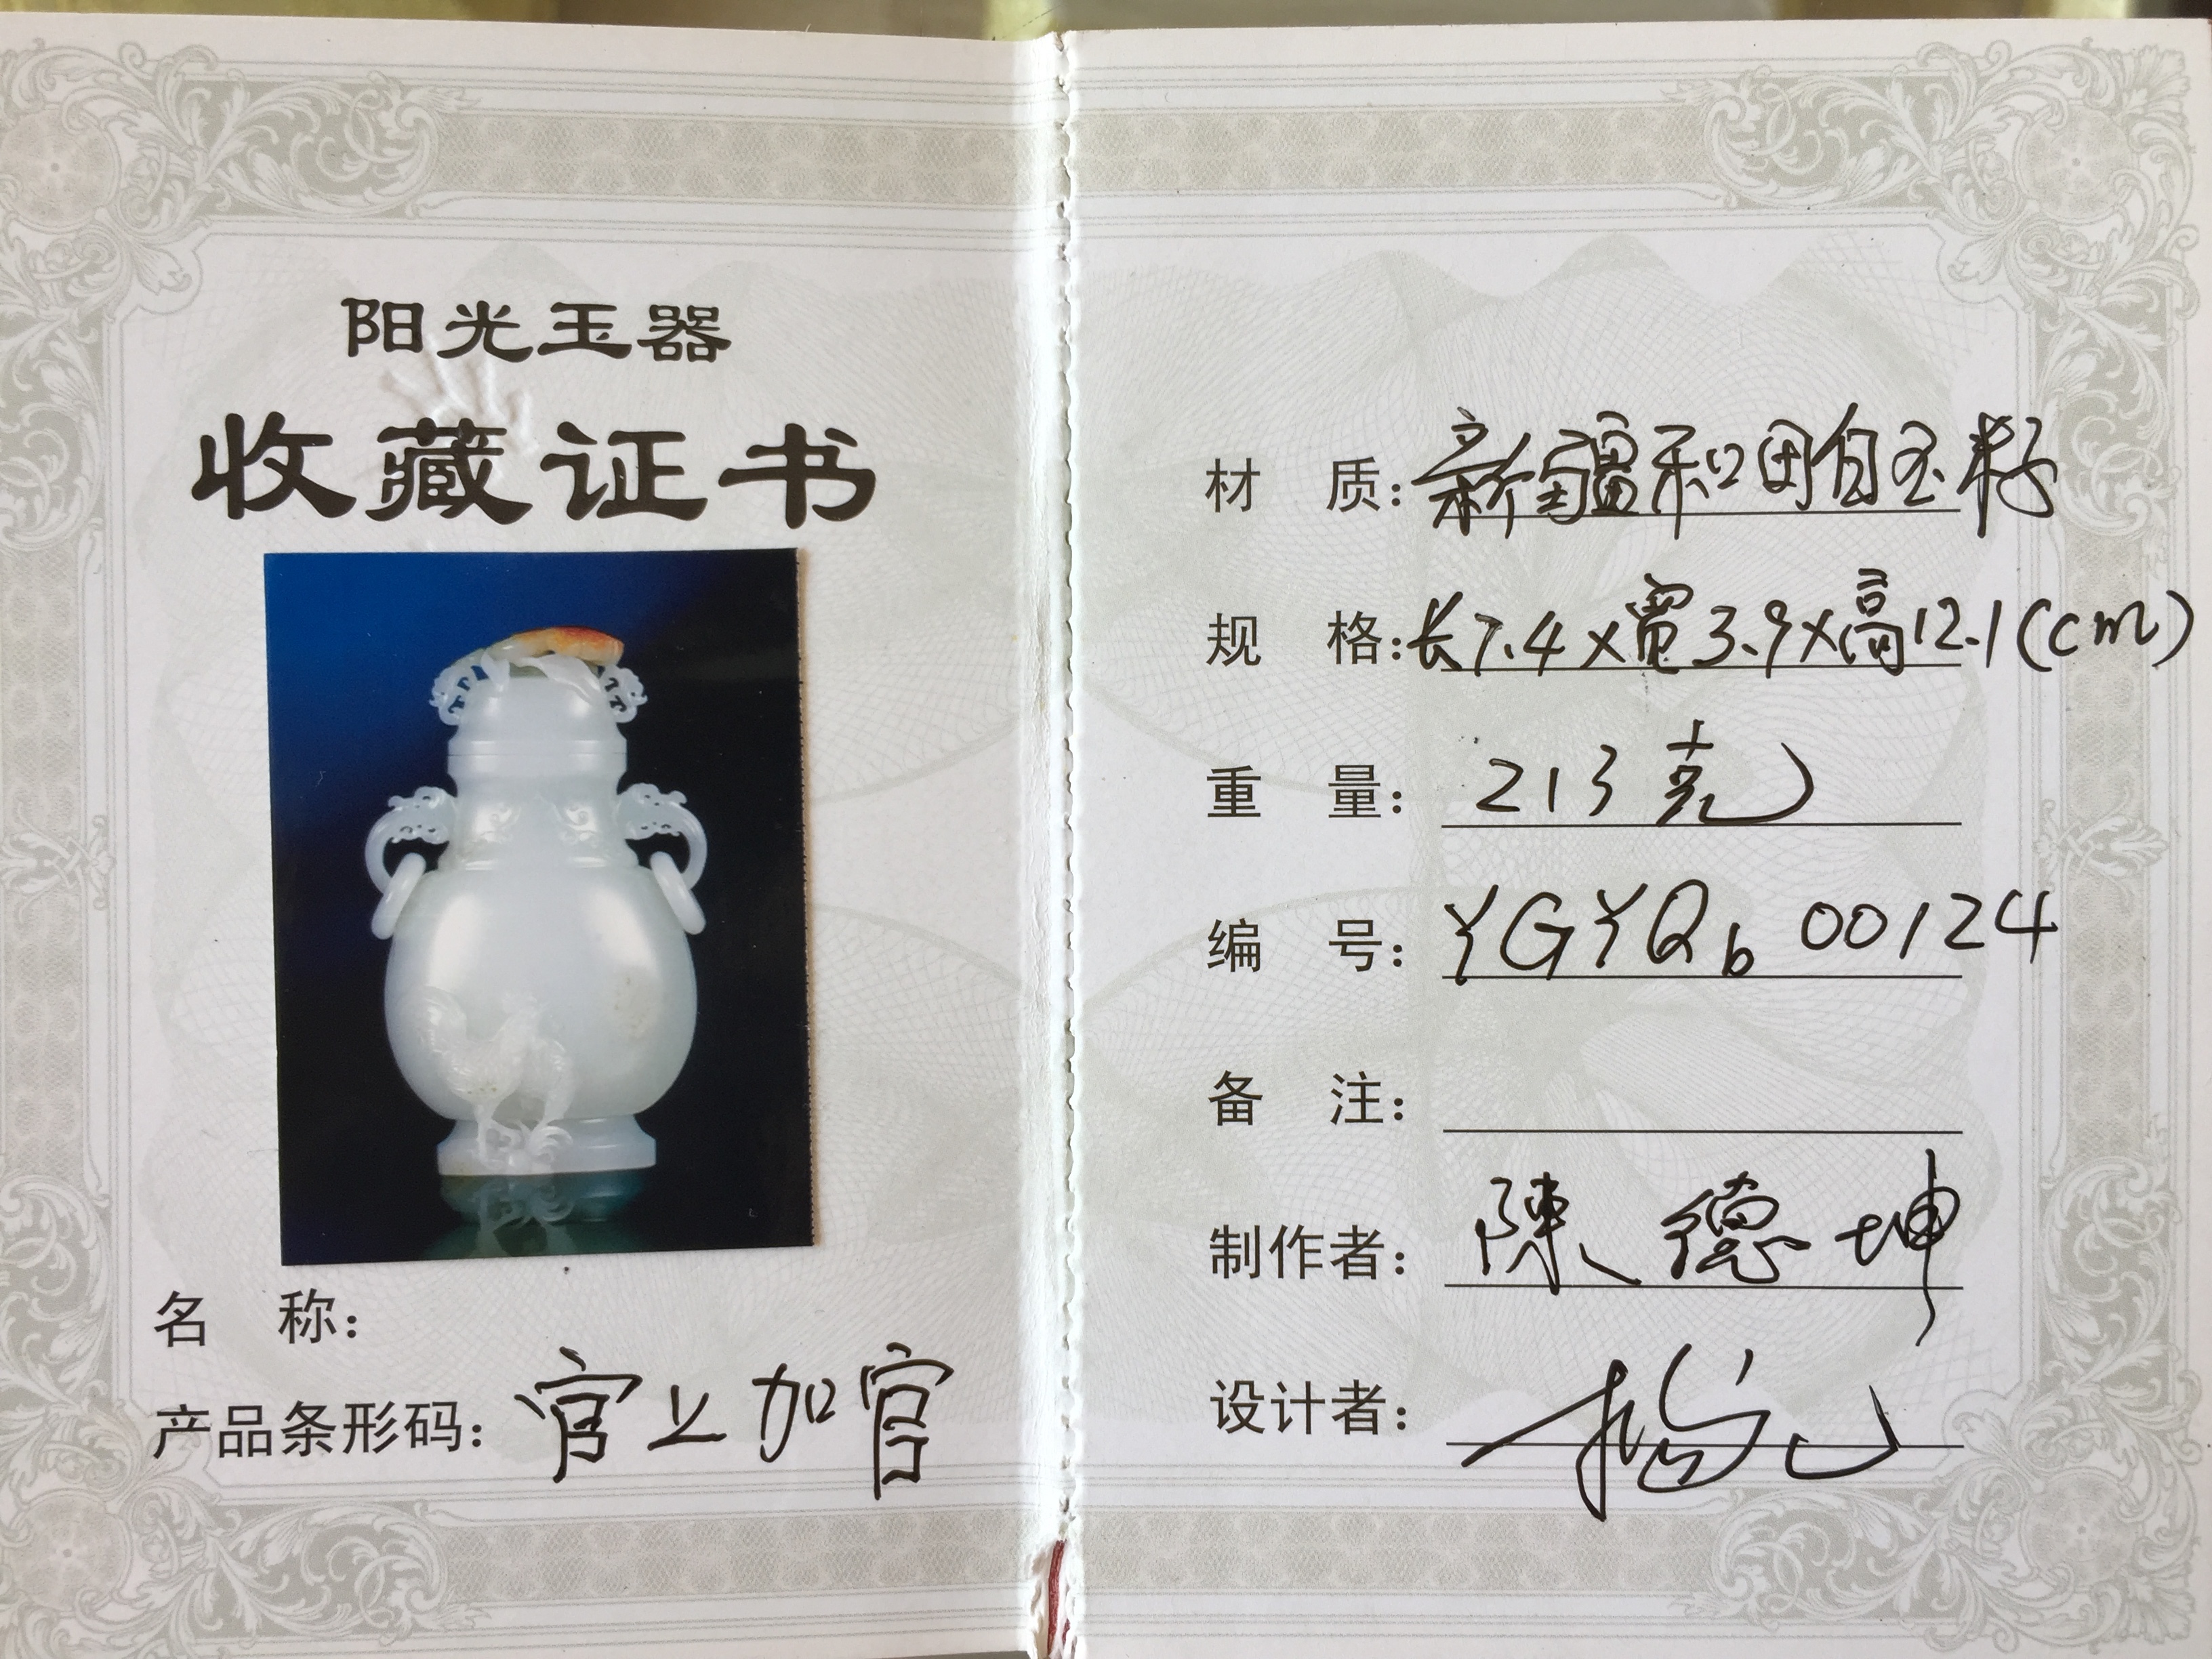 阳光玉器
收藏证书
名 称：
产品条形码：官上加官
材 质：新疆和田白玉籽
规 格：长7.4×宽3.9×高12.1(cm)
重 量：213克
编 号：YGYQb 00124
备 注：
制作者：陳德坤
设计者：